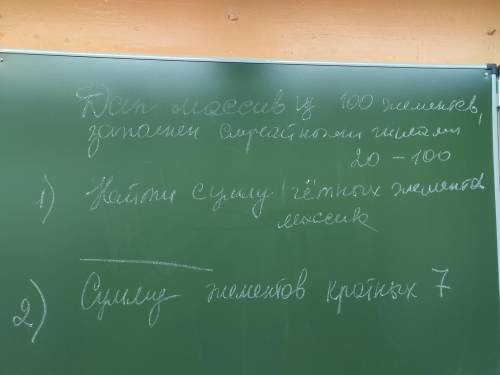 Дан массив из 100 элементов,
заполнен случайными числами
20 – 100
1) Найти сумму чётных элементов
массива
2) Сумму элементов кратных 7